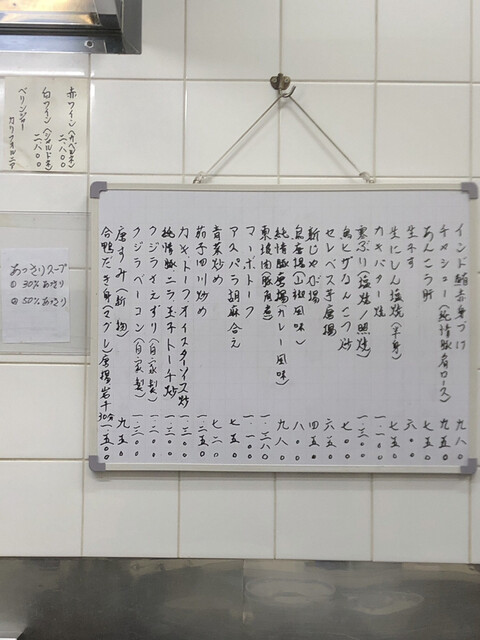 インド鮪赤身づけ 九八〇
チャシュー（純情豚肩ロース） 九五〇
あんこう肝 七五〇
生ネす 六〇〇
生にしん塩焼（半身） 七五〇
カキバター 一.一〇〇
寒ぶり（塩焼／照焼） 一.三〇〇
鳥ヒザなんこつ炒 七〇〇
セレベス芋唐揚 六五〇
新じゃが揚 四五〇
鳥唐揚（山椒風味） 八〇〇
純情豚唐揚カレー風味 九八〇
東坡肉（豚角煮） 一.三八〇
マーボトーフ 一.一〇〇
アスパラ胡麻合え 七五〇
青菜炒め 七二〇
茄子四川炒め 一.二五〇
カキ、トーフオイスターソース炒 一.三〇〇
純情豚ニラ玉ネトーチ炒 一.三〇〇
クジラさえずり（自家製） 一.二〇〇
クジラベーコン（自家製） 一.三〇〇
唐すみ（新物） 九五〇
合鴨だき身（マグレ）唐揚岩干30分 一.五〇〇
赤ワイン（カベルネ） 二.八〇〇
白ワイン（シャルドネ） 二.八〇〇
ベリンジャー
カリフォルニア
あっさりスープ
① 30％あさり
② 50％あさり